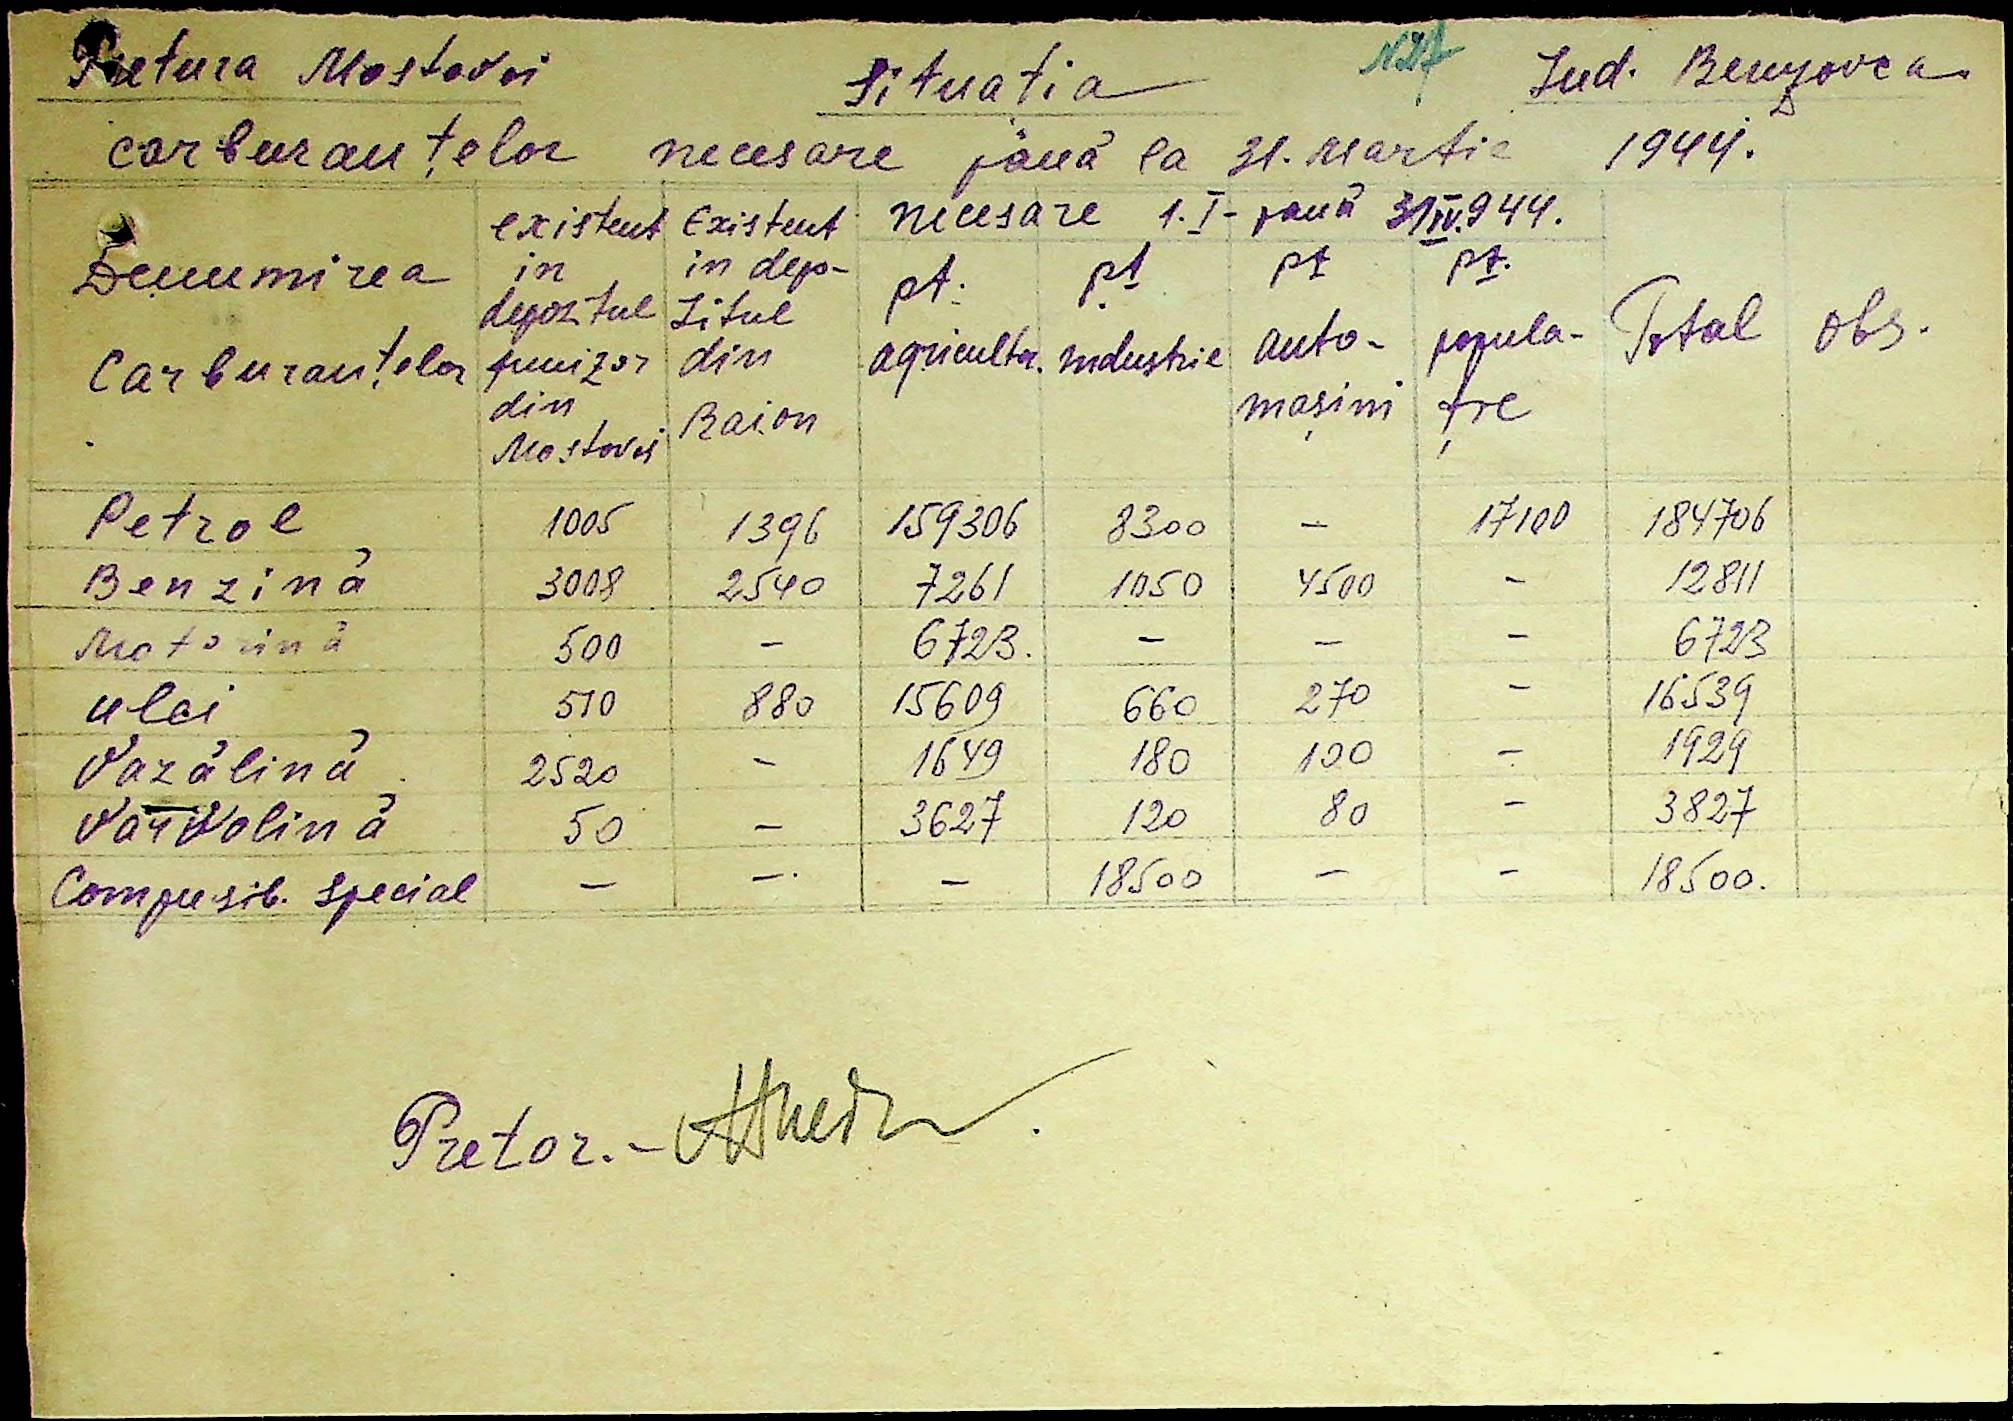 Pretura Mostovoi Situatia N27 Jud. Berezovca.
carburanților necesare până la 31. Martie 1944.
Denumirea Carburanțelor existent in depozitul furnizor din Mostovoi Existent in depo-zitul din Raion necesare 1.I - până 31 IV.944. Total Obs.
pt. agricultu. pt industrie pt auto-mașini pt. popula-ție
Petrol 1005 1396 159306 8300 — 17100 184706
Benzină 3008 2540 7261 1050 4500 — 12811
Motorină 500 — 6723. — — — 6723
ulei 510 880 15609 660 270 — 16539
Vazălină 2520 — 1649 180 100 — 1929
Varvolină 50 — 3627 120 80 — 3827
Compusib. special — —. — 18500 — — 18500.
Pretor. —